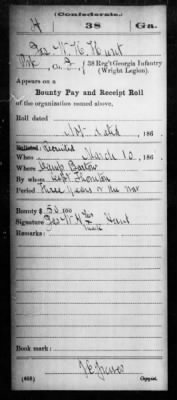 (Confederate.)
H 38 Ga.
Jas. W. H. Hunt
Pvt, Co. I, 38 Reg't Georgia Infantry
(Wright Legion).
Appears on a
Bounty Pay and Receipt Roll
of the organization named above.
Roll dated
Not dated, 186 .
Enlisted:
When March 10, 186 .
Where Camp Bartow
By whom Capt Thornton
Period Three Years or the war
Bounty $ 50 /100
Signature Jas W. H. his X mark Hunt
Remarks:
Book mark:
(655) Copyist.